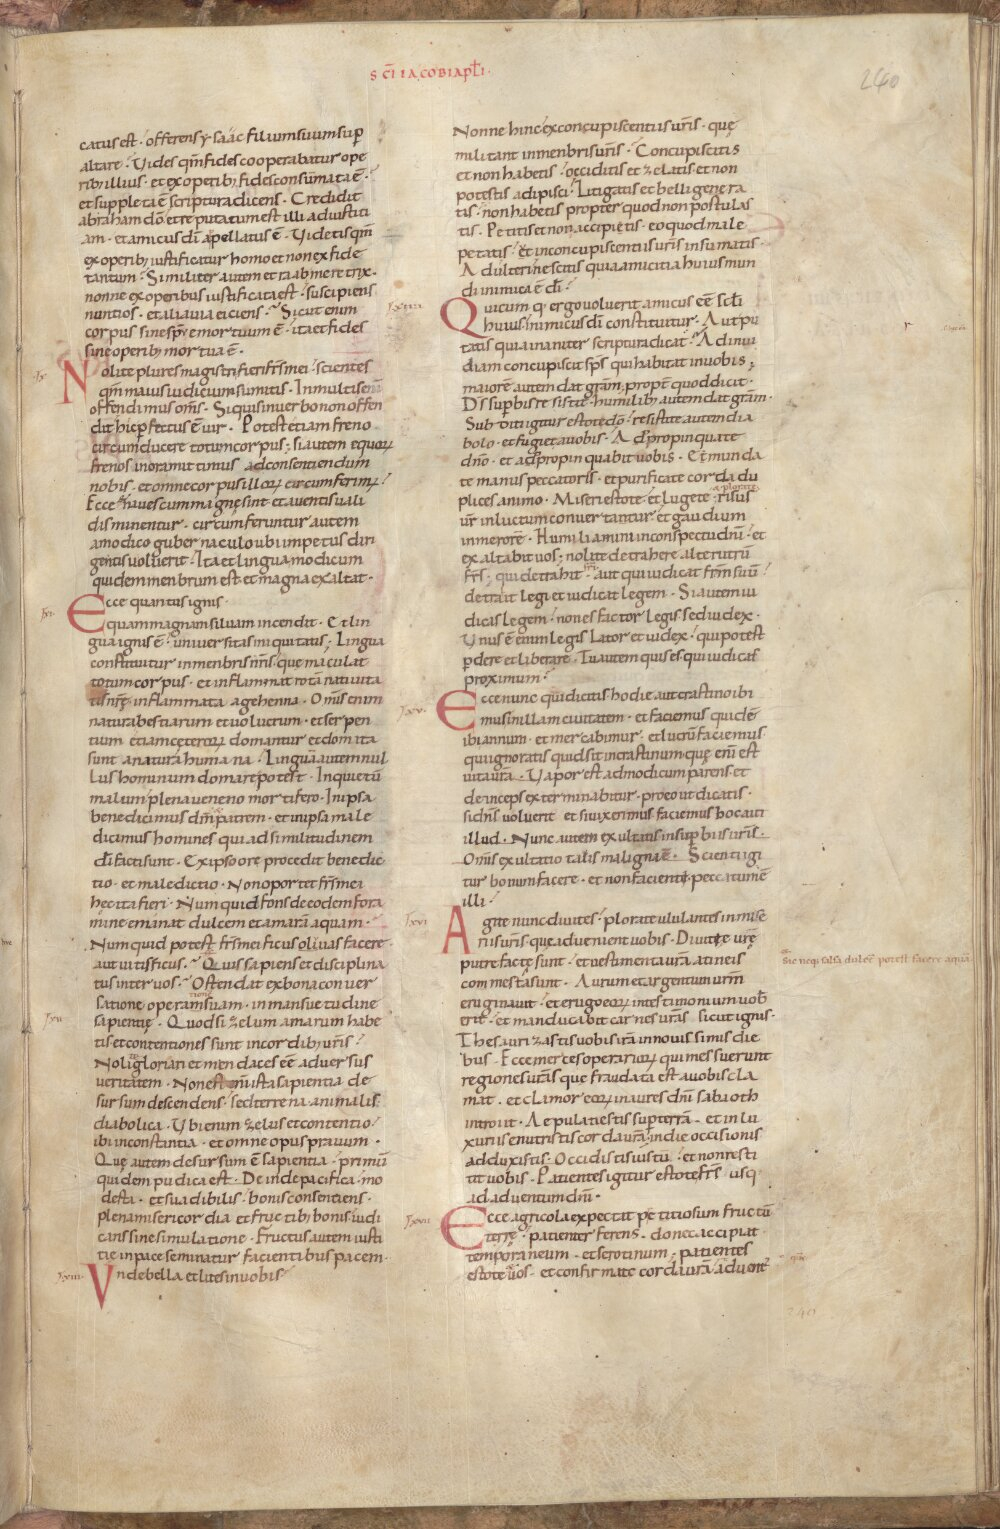 SCI IACOBI APLI.
240
catus est. offerens ysaac filium suum sup
altare. Uides qm fides cooperabatur ope
rib; illius. et ex operib; fides consummata ē.
et suppleta ē scriptura dicens. Credidit
abraham dō et reputatum est illi ad iustiti
am. et amicus dī apellatus ē. Videtis qm
ex operib; iustificatur homo et non ex fide
tantum. Similiter autem et raab meretrix.
nonne ex operibus iustificata est. suscipiens
nuntios. et alia uia eiciens. Sicut enim
corpus sine spū emortuum ē. ita et fides
sine operib; mortua ē.
Nolite plures magistri fieri frs mei. scientes
qm maius iudicium sumitis. In multis enī
offendimus oms. Si quis in uerbo non offen
dit hic pfectus ē uir. Potest etiam freno
circumducere totum corpus; si autem equoꝝ
frenos in ora mittimus ad consentiendum
nobis. et omne corpus illoꝝ circumferimꝰ.
Ecce naues cum magnę sint et a uentis uali
dis minentur. circumferuntur autem
a modico gubernaculo ubi impetus diri
gentis voluerit. Ita et lingua modicum
quidem menbrum est et magna exaltat.
Ecce quantus ignis
quam magnam siluam incendit. Et lin
gua ignis ē. uniuersitas iniquitatis. Lingua
constituitur in menbris nris. que maculat
totum corpus. et inflammat rotā natiuita
tis nrę inflammata a gehenna. Omis enim
natura bestiarum et uolucrum. et serpen
tium etiam cęteroꝝ domantur et domita
sunt a natura humana. Linguā autem nul
lus hominum domare potest. Inquietū
malum plena ueneno mortifero. In ipsa
benedicimus dm patrem. et in ipsa male
dicimus homines qui ad similitudinem
di facti sunt. Ex ipso ore procedit benedic
tio. et maledictio. Non oportet frs mei
hec ita fieri. Numquid fons de eodem fora
mine emanat dulcem et amarā aquam.
Numquid potest frs mei ficus oliuas facere
aut uitis ficus. Quis sapiens et disciplina
tus inter uos. Ostendat ex bona conuer
satione operam suam. in mansuetudine
sapientię. Quod si zelum amarum habe
tis et contentiones sunt in cordib; uris.
Noli gloriari et mendaces eē aduersus
ueritatem. Non est ista sapientia de
sursum descendens. sed terrena animalis
diabolica. Ubi enim zelus et contentio.
ibi inconstantia. et omne opus prauum.
Quę autem desursum ē sapientia. primū
quidem pudica est. Deinde pacifica. mo
desta. et suadibilis. bonis consentiens.
plena misericordia et fructib; bonis iudi
cans sine simulatione. Fructus autem iusti
tię in pace seminatur facientibus pacem.
Vnde bella et lites in uobis
Nonne hinc ex concupiscentiis uris. quę
militant in menbris uris. Concupiscitis
et non habetis. occiditis et zelatis et non
potestis adipisci. Litigatis et belligera
tis. non habetis propter quod non postulas
tis. Petitis et non accipietis. eo quod male
petatis. et in concupiscentiis uris insumatis.
Adulteri nescitis quia amicitia huius mun
di inimica ē di.
Quicumq; ergo voluerit amicus eē scli
huius. inimicus dī constituitur. Aut pu
tatis quia inaniter scriptura dicat. Ad inui
diam concupiscit sps qui habitat in uobis;
maiorē autem dat gram; propt quod dicit.
Ds supbis resistit. humilib; autem dat gram.
Subditi igitur estote dō. resistite autem dia
bolo. et fugiet a uobis. Adpropinquate
dno. et adpropinquabit uobis. Emunda
te manus peccatores. et purificate corda du
plices animo. Miseri estote et lugete. risus
ur in luctum conuertantur. et gaudium
in merorē. Humiliamini in conspectu dni. et
exaltabit uos; nolite detrahere alterutrū
frs; qui detrahit frī. aut qui iudicat frm suū.
detrait legi et iudicat legem. Si autem iu
dicas legem. non es factor legis. sed iudex.
Unus ē enim legis lator et iudex. qui potest
pdere et liberare. Tu autem quis es qui iudicas
proximum.
Ecce nunc qui dicitis hodie aut crastino ibi
mus in illam ciuitatem. et faciemus quidē
ibi annum. et mercabimur. et lucrū faciemus
qui ignoratis quid sit in crastinum. quę enī est
uita ura. Uapor est ad modicum parens. et
deinceps exterminabitur. pro eo ut dicatis.
si dns voluerit et si uixerimus faciemus hoc aut
illud. Nunc autem exultatis in supbiis uris.
Omis exultatio talis maligna ē. Scienti igi
tur bonum facere. et non facienti. peccatum ē
illi.
Agite nunc diuites. plorate ululantes in mise
riis uris. que aduenient uobis. Diuitię urę
putrefactę sunt. et uestimenta ura a tineis
commesta sunt. Aurum et argentum urm
eruginauit. et erugo eoꝝ in testimonium uob
erit. et manducabit carnes uras sicut ignis.
Thesaurizastis uobis iram in nouissimis die
bus. Ecce merces operarioꝝ qui messuerunt
regiones uras que fraudata est a uobis cla
mat. et clamor eoꝝ in aures dni sabaoth
introiit. Aepulati estis sup terrā. et in lu
xuriis enutristis corda ura. in die occisionis
adduxistis. Occidistis iustū. et non resti
tit uobis. Patientes igitur estote frs usq;
ad aduentum dni.
Ecce agricola expectat pretiosum fructū
terrę. patienter ferens. donec accipiat
temporaneum. et serotinum; patientes
estote et uos. et confirmate corda ura. aduent
Sic neq; salsa dulcē potest facere aquā
240